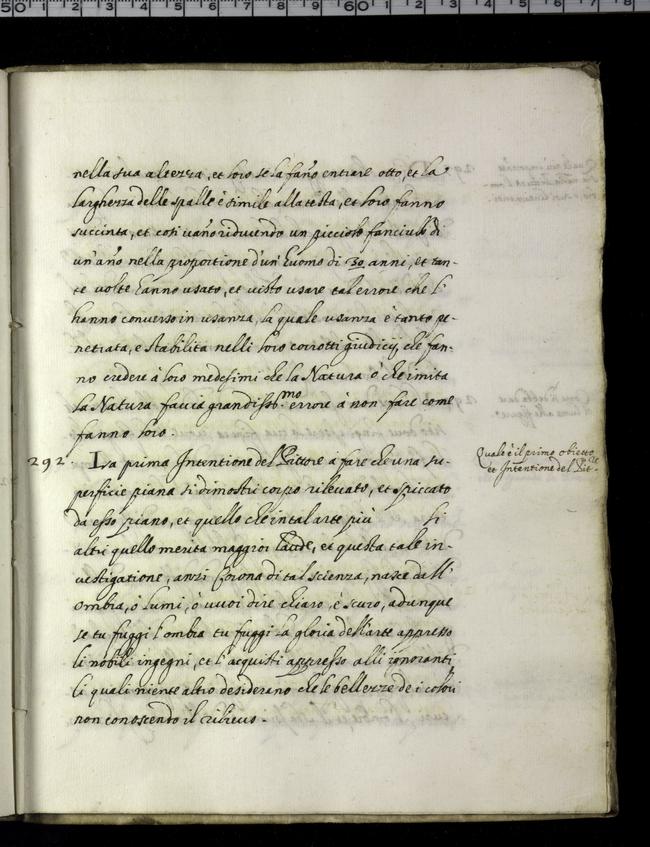 nella sua altezza, et loro se la fano entrare otto, et la
larghezza delle spalle è simile alla testa, et loro fanno
succinta, et così vano riducendo un picciolo fanciullo di
un'ano nella proportione d'un huomo di 30 anni, et tan-
te volte hanno usato, et visto usare tal errore che l'
hanno converso in usanza, la quale usanza è tanto pe-
netrata, e stabilita nelli loro corrotti giudicij, che fan-
no credere à loro medesimi che la Natura ò che imita
la Natura faccia grandiss.mo errore à non fare come
fanno loro.
292 La prima Intentione del Pittore a fare che una su-
perficie piana si dimostri corpo rilevato, et spiccato
da esso piano, et quello che in tal arte più li
altri quello merita maggior laude, et questa tale in-
vestigatione, anzi corona di tal scienza, nasce dall'
ombra, ò lumi, ò vuoi dire chiaro, è scuro, adunque
se tu fuggi l'ombra tu fuggi la gloria dell'arte appresso
li nobili ingegni, et l'acquisti appresso alli ignoranti
li quali niente altro desiderano che le bellezze dei colori
non conoscendo il rilievo.
Quale è il primo obietto
et Intentione del Pit.re